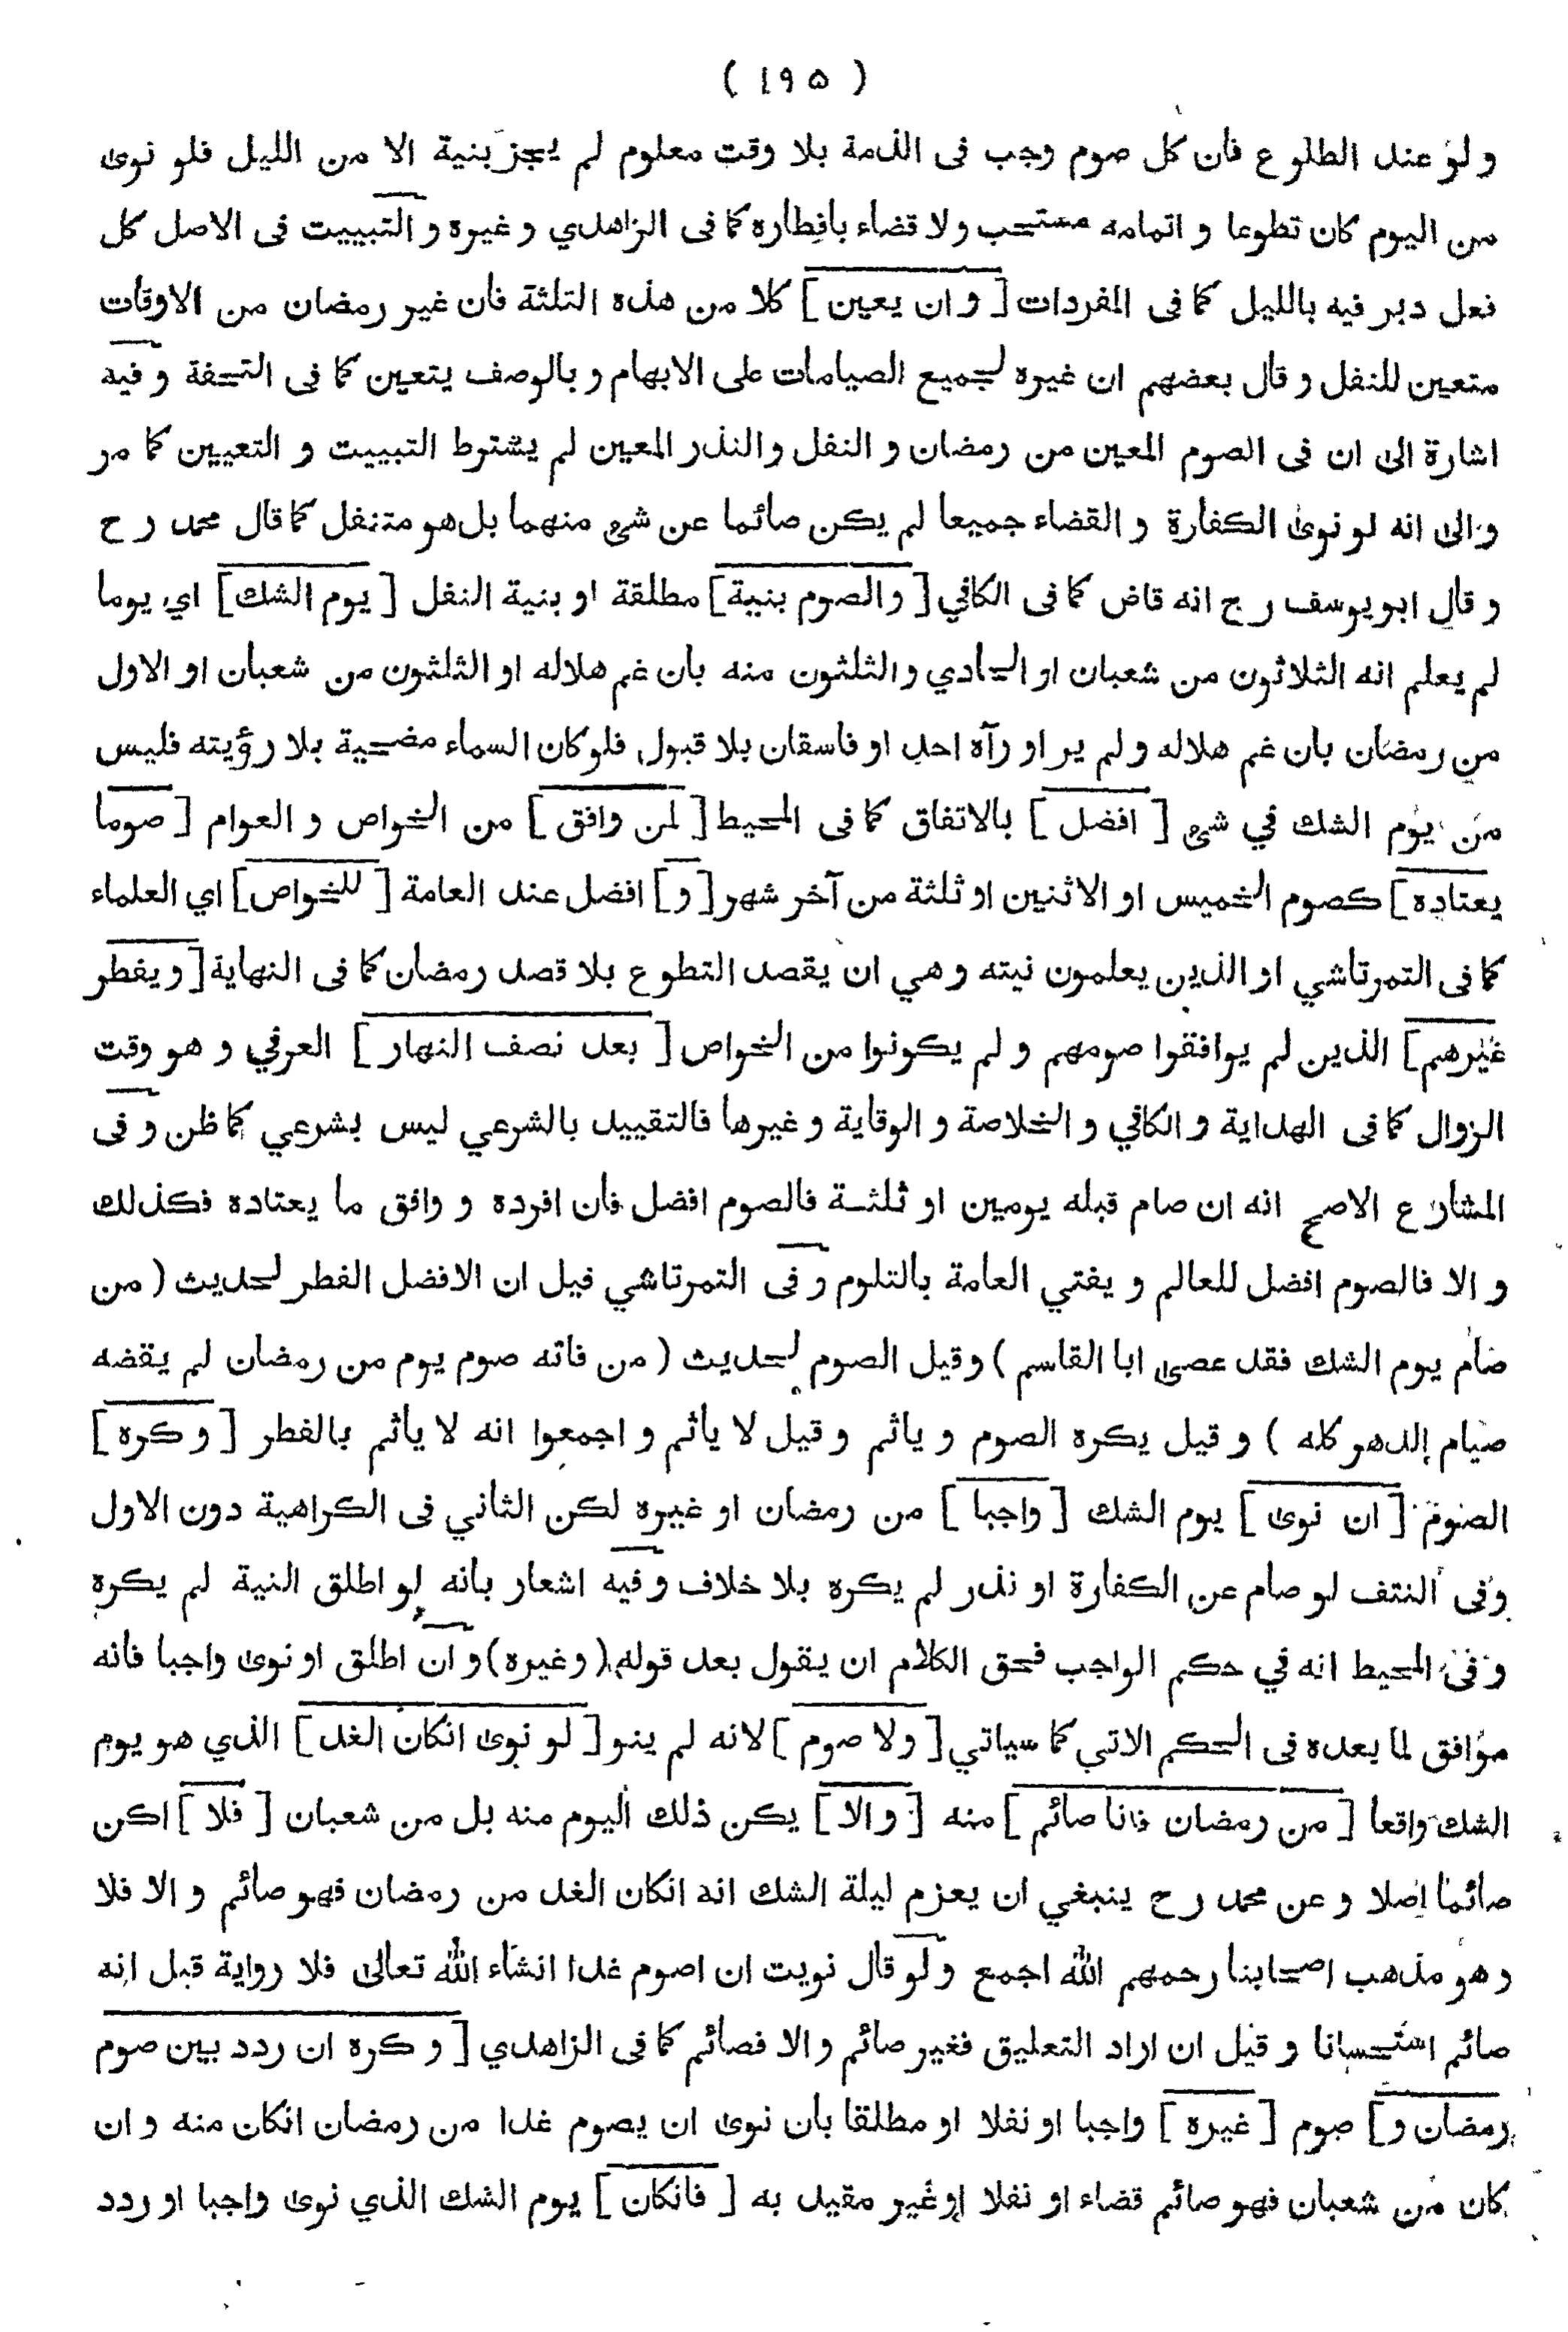 ( ١٩٥ )
و لو عند الطلوع فان كل صوم وجب فى الذمة بلا وقت معلوم لم يجز بنية الا من الليل فلو نوى
من اليوم كان تطوعا و اتمامه مستحب ولا قضاء بافطاره كما فى الزاهدي و غيره و التبييت فى الاصل كل
فعل دبر فيه بالليل كما فى المفردات [ و ان يعين ] كلا من هذه الثلثة فان غير رمضان من الاوقات
متعين للنفل و قال بعضهم ان غيره لجميع الصيامات على الابهام و بالوصف يتعين كما فى التحفة و فيه
اشارة الى ان فى الصوم المعين من رمضان و النفل والنذر المعين لم يشترط التبييت و التعيين كما مر
و الى انه لو نوى الكفارة و القضاء جميعا لم يكن صائما عن شئ منهما بل هو متنفل كما قال محمد رح
و قال ابو يوسف رح انه قاض كما فى الكافي [ والصوم بنية ] مطلقة او بنية النفل [ يوم الشك ] اي يوما
لم يعلم انه الثلاثون من شعبان او الحادي والثلثون منه بان غم هلاله او الثلثون من شعبان او الاول
من رمضان بان غم هلاله و لم ير او رآه احد او فاسقان بلا قبول فلو كان السماء مضحية بلا رؤيته فليس
من يوم الشك في شئ [ افضل ] بالاتفاق كما فى المحيط [ لمن وافق ] من الخواص و العوام [ صوما
يعتاده ] كصوم الخميس او الاثنين او ثلثة من آخر شهر [ و ] افضل عند العامة [ للخواص ] اي العلماء
كما فى التمرتاشي او الذين يعلمون نيته و هي ان يقصد التطوع بلا قصد رمضان كما فى النهاية [ و يفطر
غيرهم ] الذين لم يوافقوا صومهم و لم يكونوا من الخواص [ بعد نصف النهار ] العرفي و هو وقت
الزوال كما فى الهداية و الكافي و الخلاصة و الوقاية و غيرها فالتقييد بالشرعي ليس بشرعي كما ظن و فى
المشارع الاصح انه ان صام قبله يومين او ثلثة فالصوم افضل فان افرده و وافق ما يعتاده فكذلك
و الا فالصوم افضل للعالم و يفتي العامة بالتلوم و فى التمرتاشي قيل ان الافضل الفطر لحديث ( من
صام يوم الشك فقد عصى ابا القاسم ) و قيل الصوم لحديث ( من فاته صوم يوم من رمضان لم يقضه
صيام الدهر كله ) و قيل يكره الصوم و ياثم و قيل لا يأثم و اجمعوا انه لا يأثم بالفطر [ و كره ]
الصوم [ ان نوى ] يوم الشك [ واجبا ] من رمضان او غيره لكن الثاني فى الكراهية دون الاول
وفى النتف لو صام عن الكفارة او نذر لم يكره بلا خلاف و فيه اشعار بانه لو اطلق النية لم يكره
و فى المحيط انه في حكم الواجب فحق الكلام ان يقول بعد قوله ( وغيره ) و ان اطلق او نوى واجبا فانه
موافق لما يعده فى الحكم الاتي كما سياتي [ ولا صوم ] لانه لم ينو [ لو نوى انكان الغد ] الذي هو يوم
الشك واقعا [ من رمضان فانا صائم ] منه [ و الا ] يكن ذلك اليوم منه بل من شعبان [ فلا ] اكن
صائما اصلا و عن محمد رح ينبغي ان يعزم ليلة الشك انه انكان الغد من رمضان فهو صائم و الا فلا
و هو مذهب اصحابنا رحمهم الله اجمع و لو قال نويت ان اصوم غدا انشاء الله تعالى فلا رواية قبل انه
صائم استحسانا و قيل ان اراد التعليق فغير صائم و الا فصائم كما فى الزاهدي [ و كره ان ردد بين صوم
رمضان و ] صوم [ غيره ] واجبا او نفلا او مطلقا بان نوى ان يصوم غدا من رمضان انكان منه و ان
كان من شعبان فهو صائم قضاء او نفلا او غير مقيد به [ فانكان ] يوم الشك الذي نوى واجبا او ردد